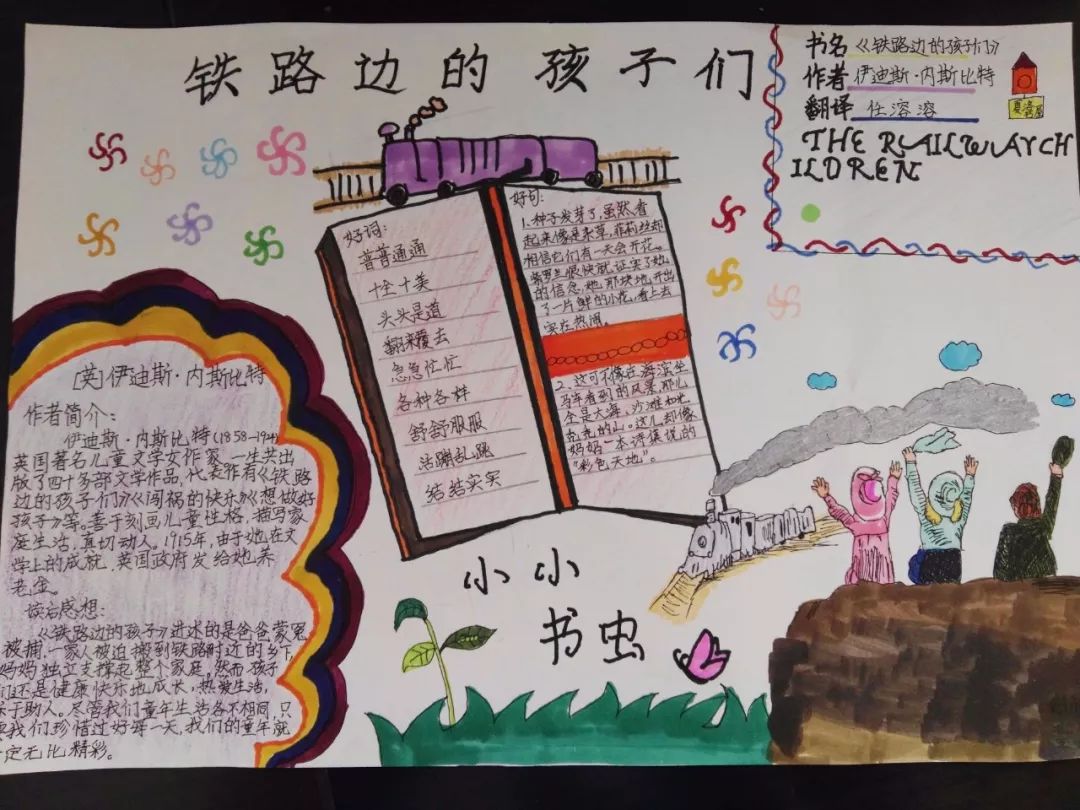 铁路边的孩子们
书名《铁路边的孩子们》
作者 伊迪斯·内斯比特
翻译 任溶溶
THE RAILWAYCH
ILDREN
好词:
普普通通
十全十美
头头是道
翻来覆去
急急忙忙
各种各样
舒舒服服
活蹦乱跳
结结实实
好句:
1.种子发芽了,虽然看
起来像是杂草,菲莉丝却
相信它们有一天会开花。
紫罗兰很快就证实了她
的信念,她那块地开出
了一片鲜的小花,看上去
实在热闹。
2.这可不像在海滨坐
马车看到的风景,那儿
全是大海,沙滩和光
秃秃的山。这儿却像
妈妈一本诗集说的
"彩色天地"。
[英]伊迪斯·内斯比特
作者简介:
伊迪斯·内斯比特(1858-1924)
英国著名儿童文学女作家,一生共出
版了四十多部文学作品,代表作有《铁路
边的孩子们》《闯祸的快乐》《想做好
孩子》等。善于刻画儿童性格,描写家
庭生活,真切动人。1915年,由于她在文
学上的成就,英国政府发给她养
老金。
读后感想:
《铁路边的孩子》讲述的是爸爸蒙冤
被捕,一家人被迫搬到铁路附近的乡下,
妈妈独立支撑起整个家庭,然而孩子
们还是健康快乐地成长,热爱生活,
乐于助人。尽管我们童年生活各不相同,只
要我们珍惜过好每一天,我们的童年就
一定无比精彩。
小小
书虫